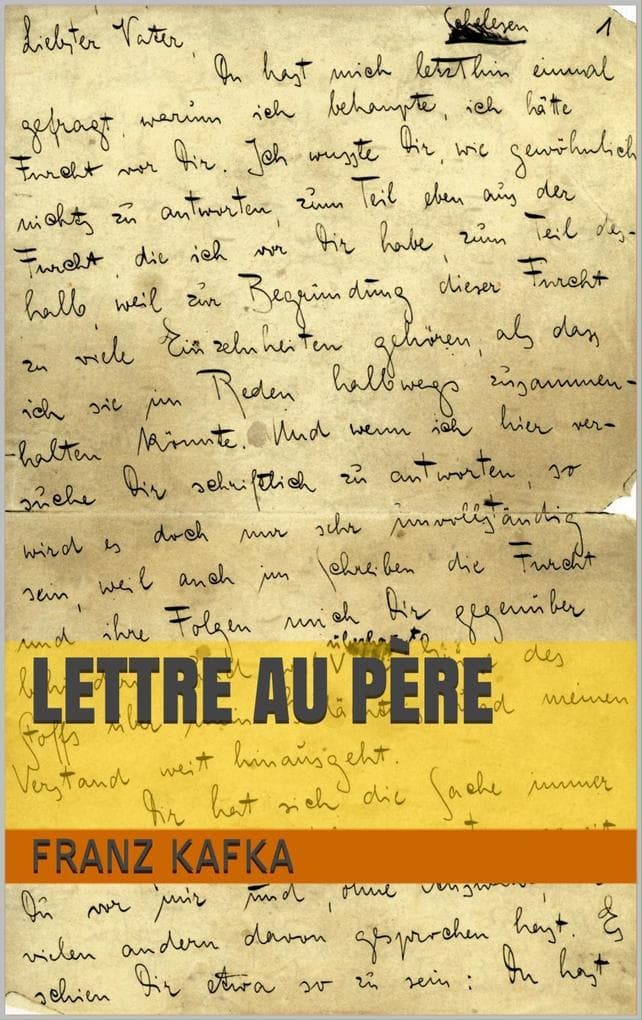 Schelesen 1
Liebster Vater,
Du hast mich letzthin einmal
gefragt, warum ich behaupte, ich hätte
Furcht vor Dir. Ich wusste Dir, wie gewöhnlich,
nichts zu antworten, zum Teil eben aus der
Furcht, die ich vor Dir habe, zum Teil des-
halb, weil zur Begründung dieser Furcht
zu viele Einzelnheiten gehören, als dass
ich sie im Reden halbwegs zusammen-
halten könnte. Und wenn ich hier ver-
suche Dir schriftlich zu antworten, so
wird es doch nur sehr unvollständig
sein, weil auch im Schreiben die Furcht
und ihre Folgen mich Dir gegenüber
des
LETTRE AU PÈRE
Stoffs über meinen
Verstand weit hinausgeht.
Dir hat sich die Sache immer
FRANZ KAFKA
Du vor mir und, ohne
vielen andern davon gesprochen hast. Es
schien Dir etwa so zu sein: Du hast